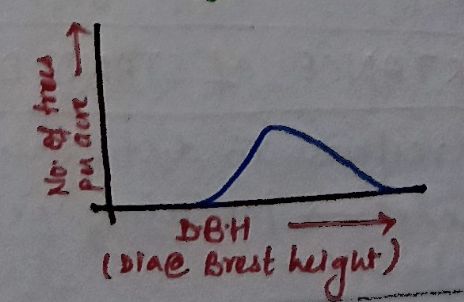 No. of trees
per acre →
D.B.H →
(Dia@ Brest height)